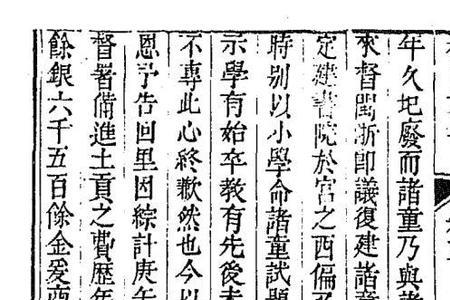 年久圯廢而諸童乃與諸
來督閩浙卽議復建諸
定建書院於宮之西偏乃
時別以小學命諸童試題
示學有始卒教有先後未
不專此心終歉然也今以
恩予告回里因綜計庚午
督署備進土貢之費歷年
餘銀六千五百餘金爰商